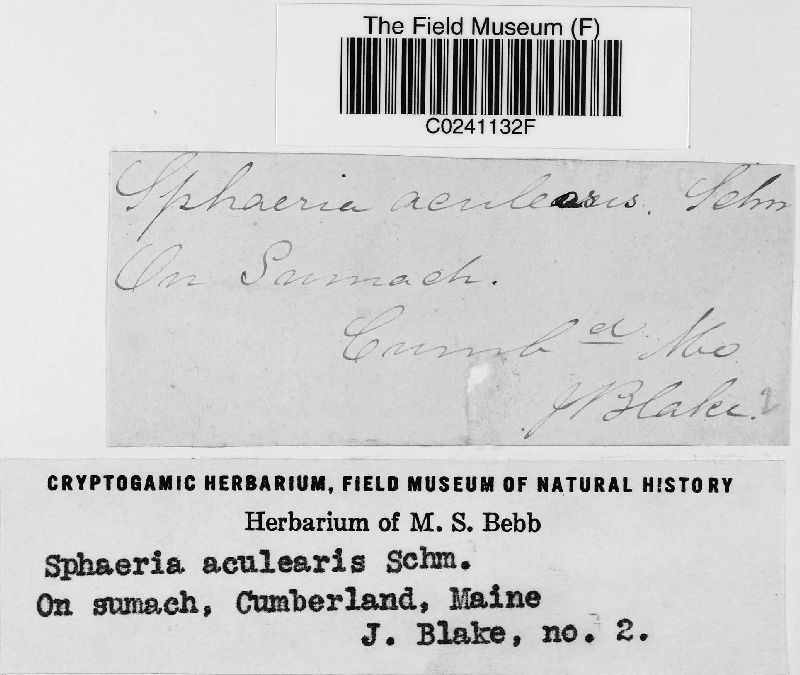 The Field Museum (F)
C0241132F
Sphaeria aculearis. Schm
On Sumach.
Cumb d Me
J Blake. 2
CRYPTOGAMIC HERBARIUM, FIELD MUSEUM OF NATURAL HISTORY
Herbarium of M. S. Bebb
Sphaeria aculearis Schm.
On sumach, Cumberland, Maine
J. Blake, no. 2.